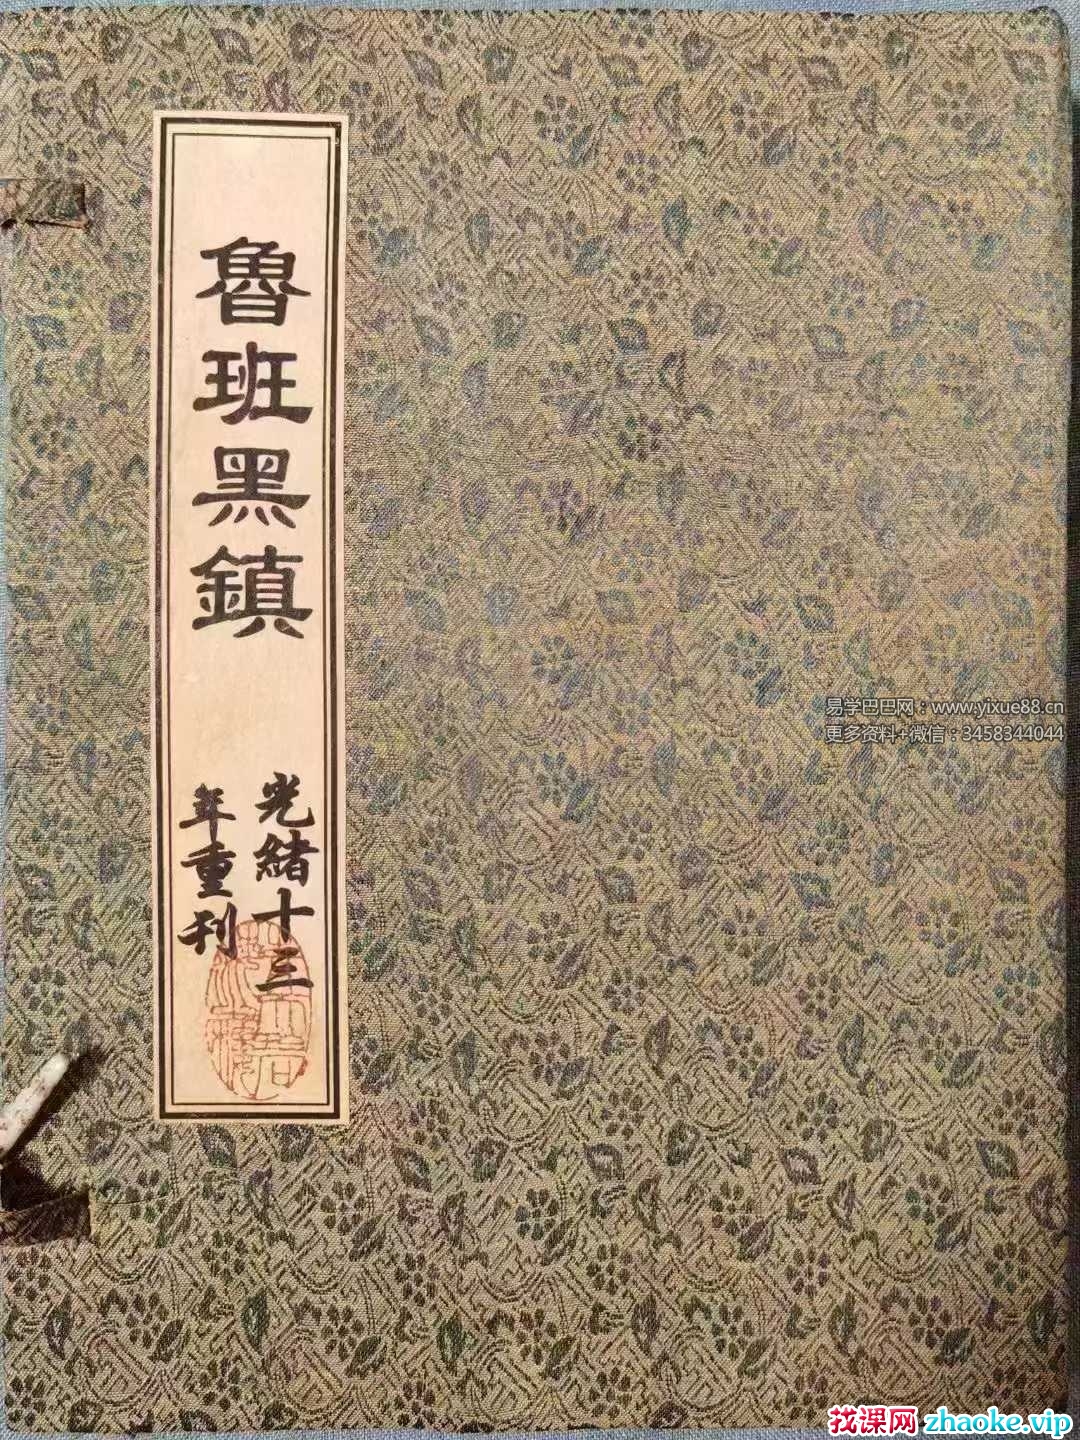 魯班黑鎮
光緒十三
年重刊
易学巴巴网：www.yixue88.cn
更多资料+微信：3458344044
找课网 zhaoke.vip